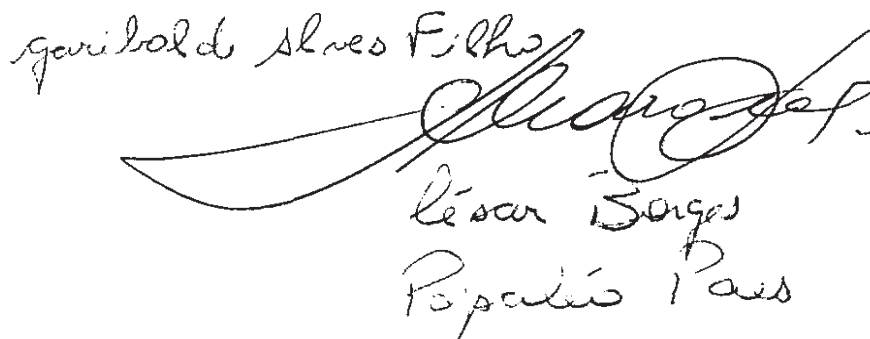 garibaldi Alves Filho
César Borges
Papaléo Paes